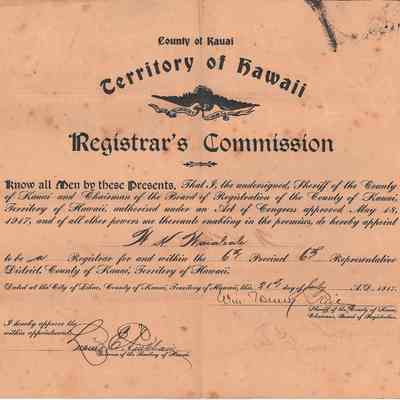 County of Kauai
Territory of Hawaii
Registrar's Commission
Know all Men by these Presents, That I, the undersigned, Sheriff of the County
of Kauai and Chairman of the Board of Registration of the County of Kauai,
Territory of Hawaii, authorized under an Act of Congress approved May 18,
1917, and of all other powers me thereunto enabling in the premises, do hereby appoint
W S
to be a Registrar for and within the 6th Precinct 6th Representative
District, County of Kauai, Territory of Hawaii.
Dated at the City of Lihue, County of Kauai, Territory of Hawaii, this 21st day of July A.D. 1917.
Wm Henry Rice
Sheriff of the County of Kauai
Chairman, Board of Registration.
I hereby approve the
within appointment.
Lucius E. Pinkham
Governor of the Territory of Hawaii